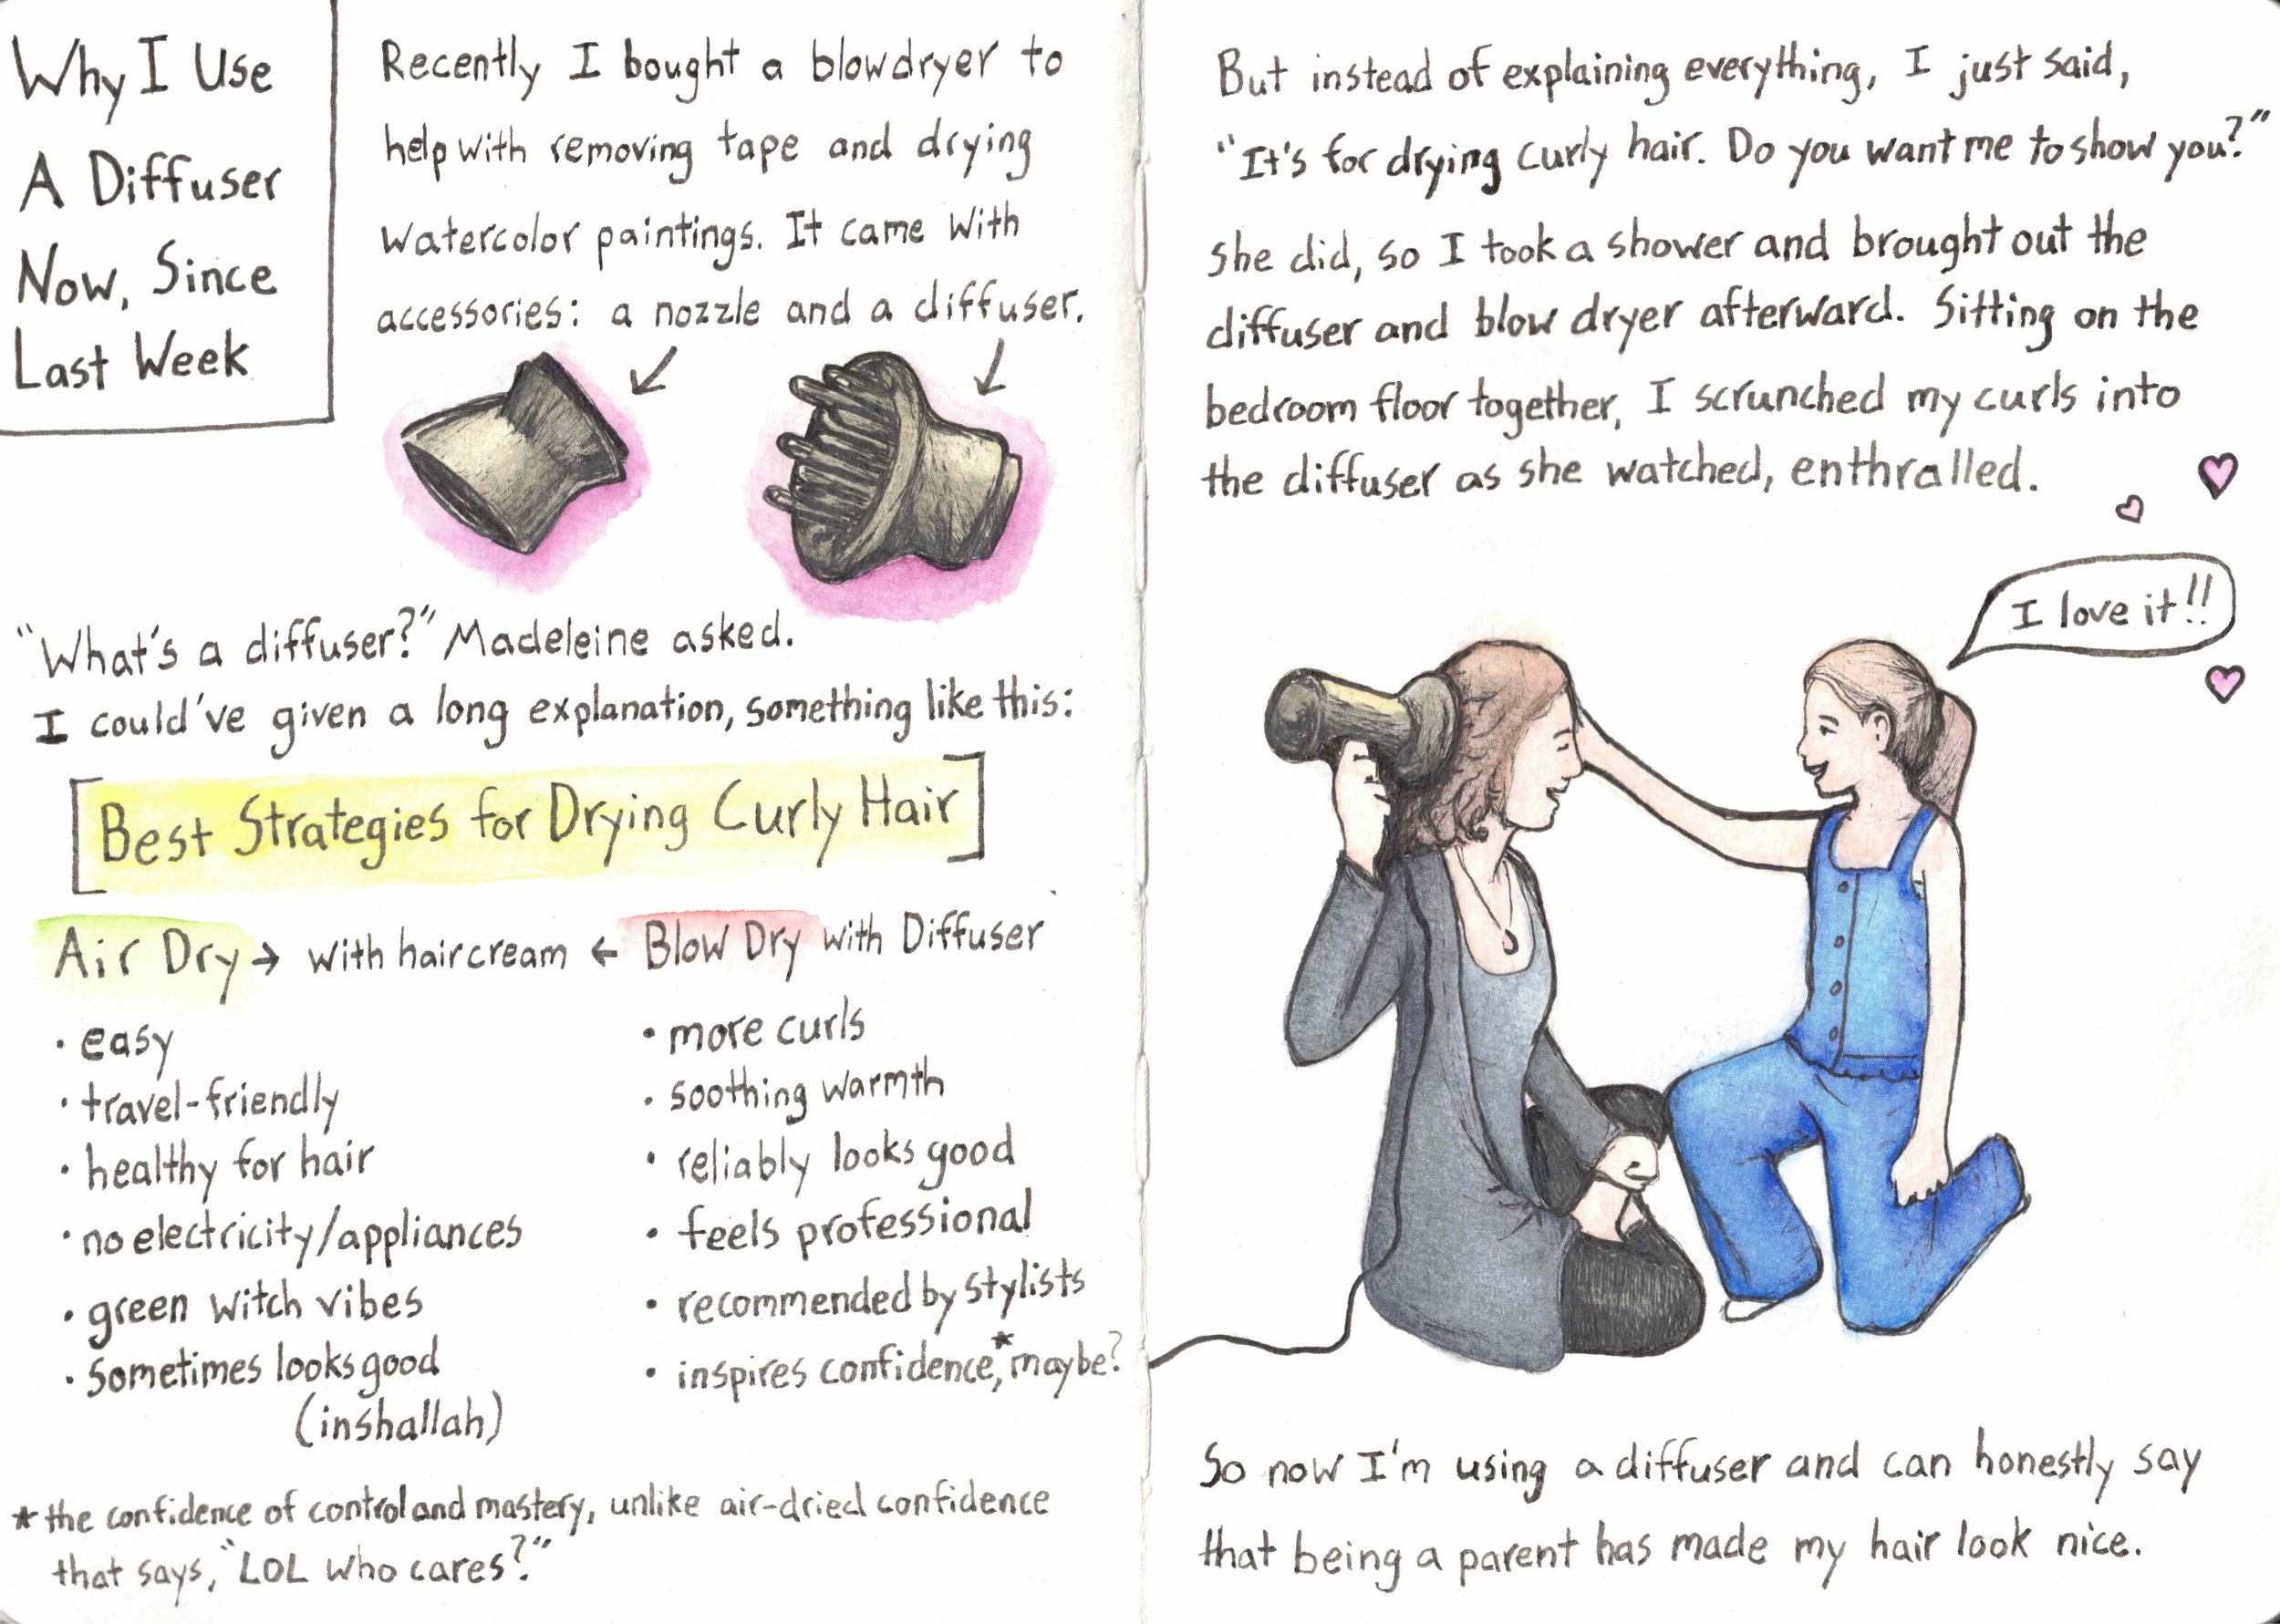 Why I Use
A Diffuser
Now, Since
Last Week
Recently I bought a blowdryer to
help with removing tape and drying
watercolor paintings. It came with
accessories: a nozzle and a diffuser.
"What's a diffuser?" Madeleine asked.
I could've given a long explanation, something like this:
[Best Strategies for Drying Curly Hair]
Air Dry → with haircream ← Blow Dry with Diffuser
• easy
• travel-friendly
• healthy for hair
• no electricity/appliances
• green witch vibes
• sometimes looks good
(inshallah)
• more curls
• soothing warmth
• reliably looks good
• feels professional
• recommended by stylists
• inspires confidence,* maybe?
* the confidence of control and mastery, unlike air-dried confidence
that says, "LOL who cares?"
But instead of explaining everything, I just said,
"It's for drying curly hair. Do you want me to show you?"
She did, so I took a shower and brought out the
diffuser and blow dryer afterward. Sitting on the
bedroom floor together, I scrunched my curls into
the diffuser as she watched, enthralled.
I love it!!
So now I'm using a diffuser and can honestly say
that being a parent has made my hair look nice.